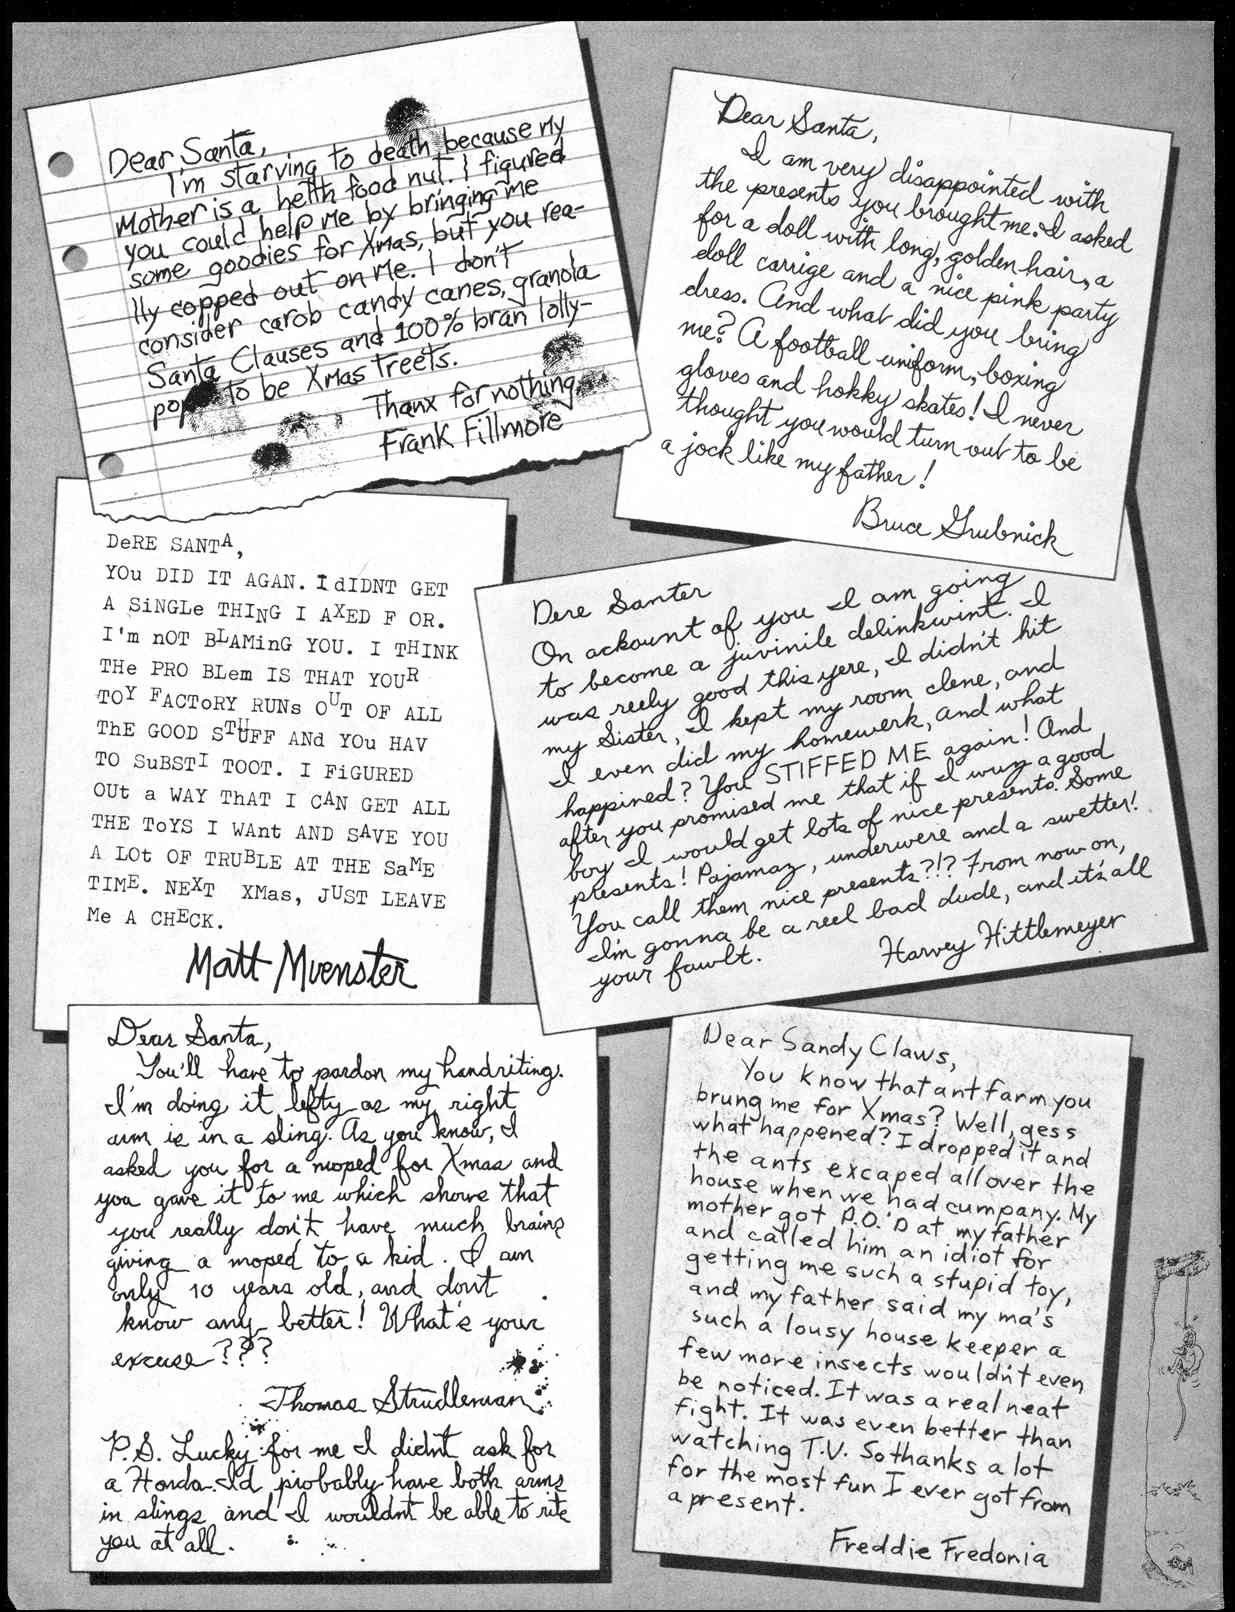 Dear Santa,
I'm starving to death because my
Mother is a helth food nut. I figured
you could help me by bringing me
some goodies for Xmas, but you rea-
lly copped out on me. I don't
consider carob candy canes, granola
Santa Clauses and 100% bran lolly-
pops to be Xmas treets.
Thanx for nothing,
Frank Fillmore
Dear Santa,
I am very disappointed with
the presents you brought me. I asked
for a doll with long, golden hair, a
doll carrige and a nice pink party
dress. And what did you bring
me? A football uniform, boxing
gloves and hokky skates! I never
thought you would turn out to be
a jock like my father!
Bruce Grubnick
DeRE SANTA,
YOu DID IT AGAN. I dIDNT GET
A SiNGLe THING I AXED F OR.
I'm nOT BLAMinG YOU. I THINK
THe PRO BLem IS THAT YOUR
TOY FACToRY RUNs OUT OF ALL
ThE GOOD STUFF ANd YOu HAV
TO SuBSTI TOOT. I FiGURED
OUt a WAY ThAT I CAN GET ALL
THE ToYS I WAnt AND SAVE YOU
A LOt OF TRUBLE AT THE SaME
TIME. NEXT XMas, JUST LEAVE
Me A CHECK.
Matt Muenster
Dere Santer
On ackount of you I am going
to become a juvinile delinkwint. I
was reely good this yere, I didn't hit
my Sister, I kept my room clene, and
I even did my homewerk, and what
happined? You STIFFED ME again! And
after you promised me that if I wuz a good
boy I would get lots of nice presents. Some
presents! Pajamaz, underwere and a swetter!
You call them nice presents?!? From now on,
I'm gonna be a reel bad dude, and it's all
your fawlt.
Harvey Hittlemeyer
Dear Santa,
You'll have to pardon my handriting.
I'm doing it lefty as my right
arm is in a sling. As you know, I
asked you for a moped for Xmas and
you gave it to me which shows that
you really don't have much brains
giving a moped to a kid. I am
only 10 years old, and don't
know any better! What's your
excuse???
Thomas Strudleman
P.S. Lucky for me I didn't ask for
a Honda. I'd probably have both arms
in slings and I wouldn't be able to rite
you at all.
Dear Sandy Claws,
You know that ant farm you
brung me for Xmas? Well, gess
what happened? I dropped it and
the ants excaped all over the
house when we had cumpany. My
mother got P.O.'D at my father
and called him an idiot for
getting me such a stupid toy,
and my father said my ma's
such a lousy house keeper a
few more insects wouldn't even
be noticed. It was a real neat
fight. It was even better than
watching T.V. So thanks a lot
for the most fun I ever got from
a present.
Freddie Fredonia